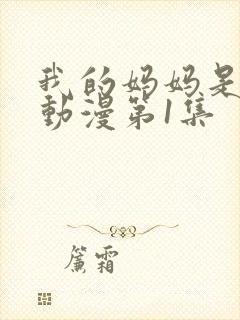 我的妈妈是
動漫第1集
簾霜